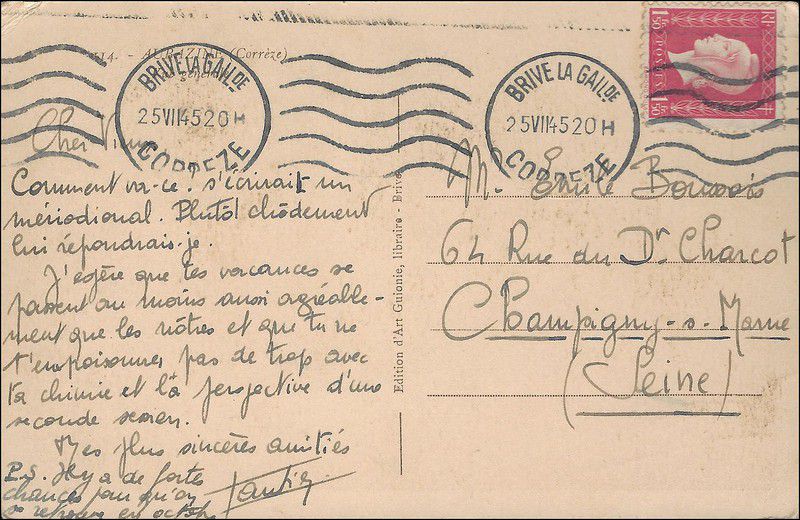 14. - AUBAZINE (Corrèze)
BRIVE LA GAILDE
25 VII 45 20 H
CORREZE
BRIVE LA GAILDE
25 VII 45 20 H
CORREZE
RF
1F50
POSTES
1F50
Cher
Comment va-ce. s'écrirait un
méridional. Plutôt chôdement
lui répondrais-je.
J'espère que tes vacances se
passent au moins aussi agréable-
ment que les nôtres et que tu ne
t'empoisonnes pas de trop avec
ta chimie et la perspective d'une
seconde session.
Mes plus sincères amitiés
P.S. Il y a de fortes
chances pour qu'on
se retrouve en octobre
Edition d'Art Guionie, libraire - Brive
M. Emile
64 Rue du Dr Charcot
Champigny-s-Marne
(Seine)